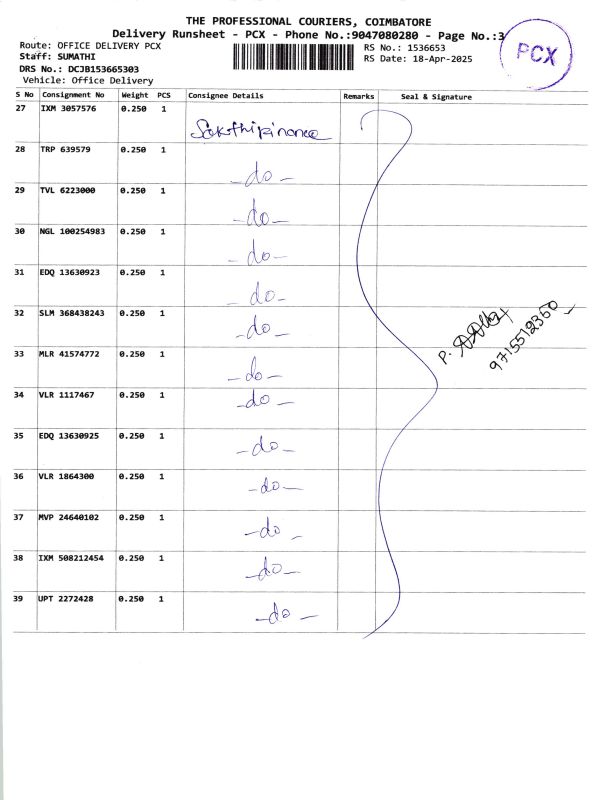 THE PROFESSIONAL COURIERS, COIMBATORE
Delivery Runsheet - PCX - Phone No.:9047080280 - Page No.:3
Route: OFFICE DELIVERY PCX
RS No.: 1536653
Staff: SUMATHI
RS Date: 18-Apr-2025
DRS No.: DCJB153665303
Vehicle: Office Delivery
PCX
S No Consignment No Weight PCS Consignee Details Remarks Seal & Signature
27 IXM 3057576 0.250 1 Sakthifinance
28 TRP 639579 0.250 1 -do-
29 TVL 6223000 0.250 1 -do-
30 NGL 100254983 0.250 1 -do-
31 EDQ 13630923 0.250 1 -do-
32 SLM 368438243 0.250 1 -do-
33 MLR 41574772 0.250 1 -do-
34 VLR 1117467 0.250 1 -do-
35 EDQ 13630925 0.250 1 -do-
36 VLR 1864300 0.250 1 -do-
37 MVP 24640102 0.250 1 -do-
38 IXM 508212454 0.250 1 -do-
39 UPT 2272428 0.250 1 -do-
P.
9715512360